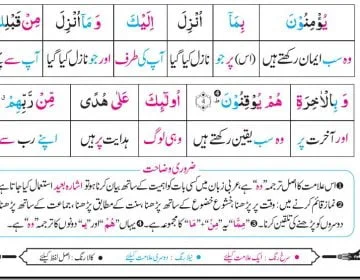 يُؤْمِنُوْنَ بِمَاۤ اُنْزِلَ اِلَيْكَ وَ مَاۤ اُنْزِلَ مِنْ
وہ سب ایمان رکھتے ہیں (اس) پر جو نازل کیا گیا آپ کی طرف اور جو نازل کیا گیا آپ سے
وَ بِالْاٰخِرَةِ هُمْ يُوْقِنُوْنَ ④ اُولٰٓئِكَ عَلٰى هُدًى مِّنْ رَّبِّهِمْ
اور آخرت پر وہ سب یقین رکھتے ہیں وہی لوگ ہدایت پر ہیں اپنے رب سے
ضروری وضاحت
❶ اس علامت کا اصل ترجمہ "وہ" ہے، عربی زبان میں کسی بات کو اہمیت کے ساتھ بیان کرنا ہو تو اشارہ بعید استعمال کیا جاتا ہے
❷ نماز قائم کرنے میں: خشوع خضوع کے ساتھ، سنت کے مطابق پڑھنا، جماعت کے ساتھ پڑھنا
دوسروں کو پڑھنے کی تلقین کرنا۔ ❸ "مِمَّا" یہ "مِنْ" + "مَا" کا مجموعہ ہے۔ ❹ یہاں "هُمْ" اور "یہ" دونوں کا ترجمہ "وہ" ہے
سرخ رنگ: ایک علامت کیلئے نیلا رنگ: دوسری علامت کیلئے کالا رنگ: اصل لفظ کیلئے